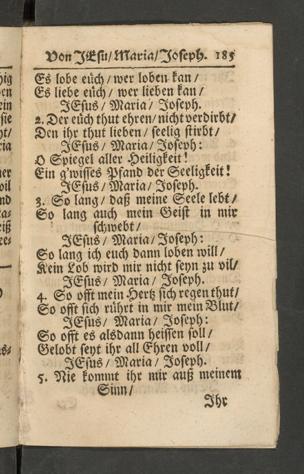 Von JEsu/Maria/Joseph. 185
Es lobe eüch/ wer loben kan/
Es liebe eüch/ wer lieben kan/
JEsus/ Maria/ Joseph.
2. Der eüch thut ehren/ nicht verdirbt/
Den ihr thut lieben/ seelig stirbt/
JEsus/ Maria/ Joseph:
O Spiegel aller Heiligkeit!
Ein g'wisses Pfand der Seeligkeit!
JEsus/ Maria/ Joseph.
3. So lang/ daß meine Seele lebt/
So lang auch mein Geist in mir
schwebt/
JEsus/ Maria/ Joseph:
So lang ich euch dann loben will/
Kein Lob wird mir nicht seyn zu vil/
JEsus/ Maria/ Joseph.
4. So offt mein Hertz sich regen thut/
So offt sich rührt in mir mein Blut/
JEsus/ Maria/ Joseph:
So offt es alsdann heissen soll/
Gelobt seyt ihr all Ehren voll/
JEsus/ Maria/ Joseph.
5. Nie kommt ihr mir auß meinem
Sinn/
Ihr